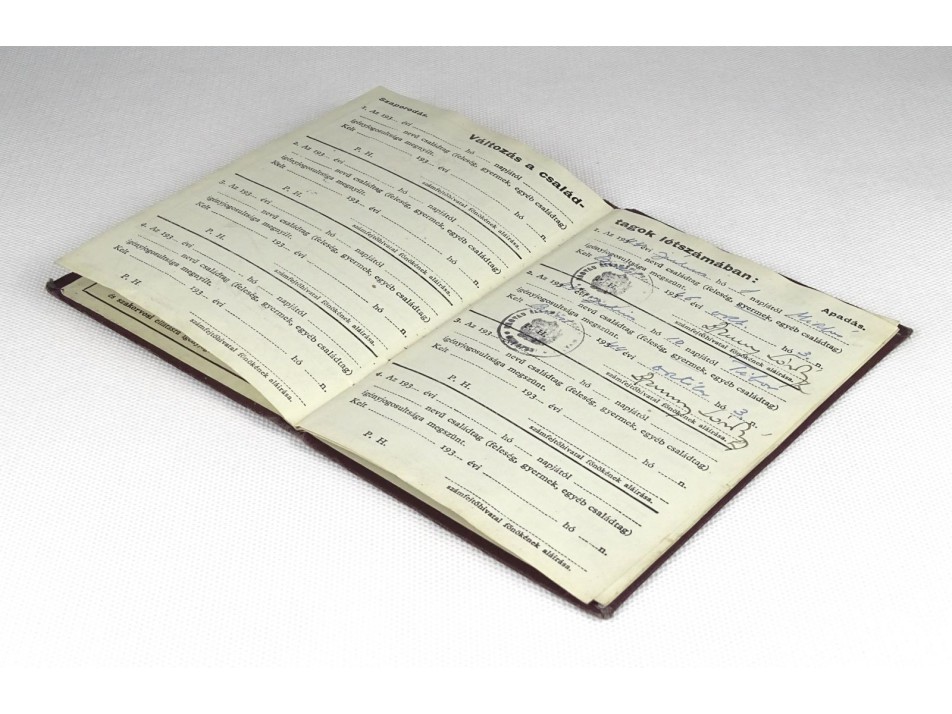 Szaporodás.
Változás a család-
1. Az 193... évi ... hó ... napjától
... nevű családtag (feleség, gyermek, egyéb családtag)
igényjogosultsága megnyílt.
Kelt ... 193... évi ... hó ... n.
P. H.
számfejtőhivatal főnökének aláírása.
2. Az 193... évi ... hó ... napjától
... nevű családtag (feleség, gyermek, egyéb családtag)
igényjogosultsága megnyílt.
Kelt ... 193... évi ... hó ... n.
P. H.
számfejtőhivatal főnökének aláírása.
3. Az 193... évi ... hó ... napjától
... nevű családtag (feleség, gyermek, egyéb családtag)
igényjogosultsága megnyílt.
Kelt ... 193... évi ... hó ... n.
P. H.
számfejtőhivatal főnökének aláírása.
4. Az 193... évi ... hó ... napjától
... nevű családtag (feleség, gyermek, egyéb családtag)
igényjogosultsága megnyílt.
Kelt ... 193... évi ... hó ... n.
P. H.
számfejtőhivatal főnökének aláírása.
és szakorvosi
tagok létszámában:
Apadás.
1. Az évi hó 1 napjától
nevű családtag (feleség, gyermek, egyéb családtag)
igényjogosultsága megszűnt.
Kelt 1946 évi okt. hó 3. n.
számfejtőhivatal főnökének aláírása.
2. Az évi hó napjától
nevű családtag (feleség, gyermek, egyéb családtag)
igényjogosultsága megszűnt.
Kelt évi október hó 3. n.
számfejtőhivatal főnökének aláírása.
3. Az 193... évi ... hó ... napjától
... nevű családtag (feleség, gyermek, egyéb családtag)
igényjogosultsága megszűnt.
Kelt ... 193... évi ... hó ... n.
P. H.
számfejtőhivatal főnökének aláírása.
4. Az 193... évi ... hó ... napjától
... nevű családtag (feleség, gyermek, egyéb családtag)
igényjogosultsága megszűnt.
Kelt ... 193... évi ... hó ... n.
P. H.
számfejtőhivatal főnökének aláírása.